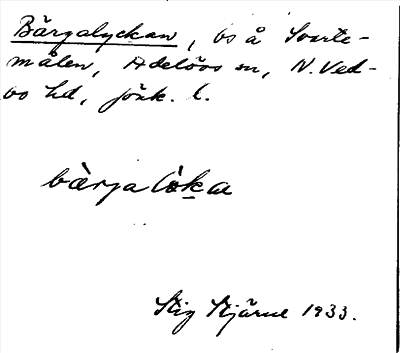 Bärgalyckan, vs å Svarte-
målen, Adelövs sn, N. Ved-
bo hd, jönk. l.
bärja löka
Stig Stjärne 1933.